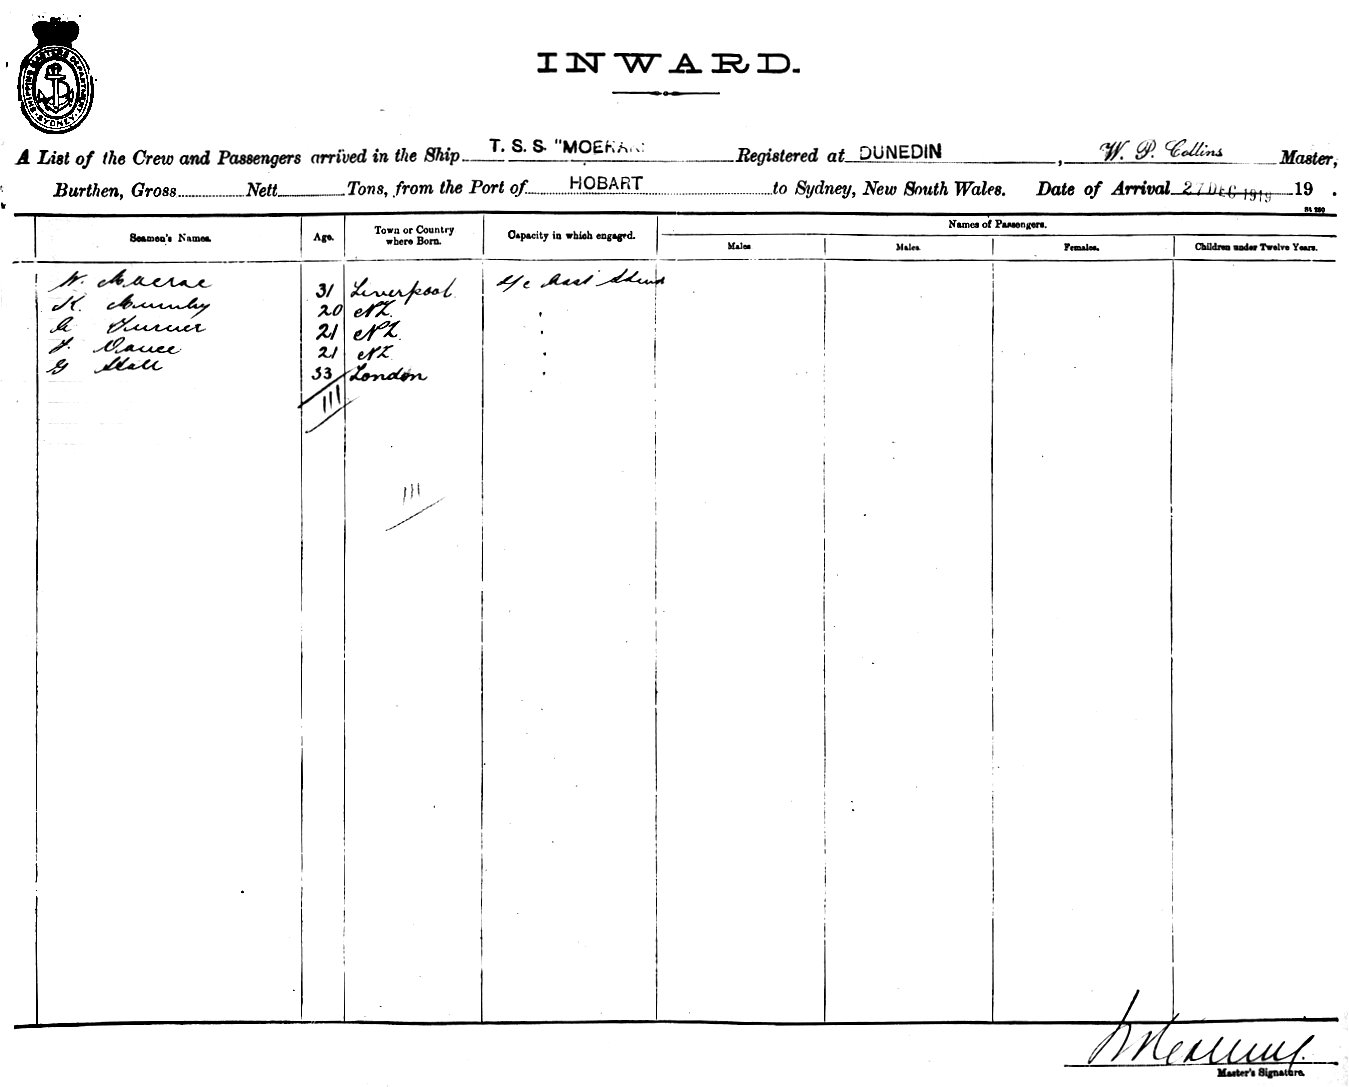 SHIPPING MASTER'S DEPARTMENT SYDNEY
INWARD.
A List of the Crew and Passengers arrived in the Ship T. S. S. "MOERAKI Registered at DUNEDIN, W. P. Collins Master,
Burthen, Gross Nett Tons, from the Port of HOBART to Sydney, New South Wales. Date of Arrival 27 DEC 1919 19 .
Seamen's Names. Age. Town or Country where Born. Capacity in which engaged. Names of Passengers.
Males Males. Females. Children under Twelve Years.
W. Macrae 31 Liverpool
K. 20 NZ
Turner 21 NZ
Vance 21 NZ
G 33 London
111
111
Master's Signature.